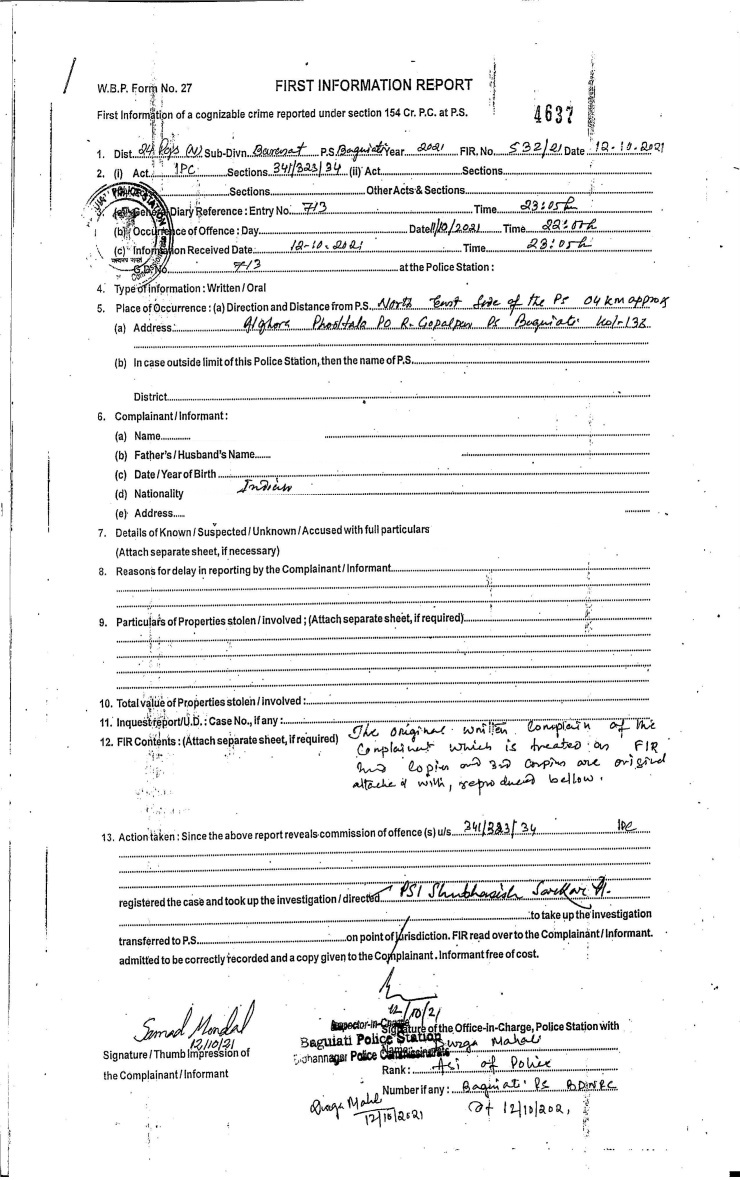 W.B.P. Form No. 27
FIRST INFORMATION REPORT
First Information of a cognizable crime reported under section 154 Cr. P.C. at P.S.
4637
1. Dist. 24 Pgs (N) Sub-Divn. Barasat P.S. Baguiati Year 2021 FIR. No. 532/21 Date 12-10-2021
2. (i) Act IPC Sections 341/323/34 (ii) Act Sections
Sections Other Acts & Sections
3. (a) General Diary Reference : Entry No. 713 Time 23:05h
(b) Occurrence of Offence : Day Date 11/10/2021 Time 22:05h
(c) Information Received Date 12-10-2021 Time 23:05h
G.D. No. 713 at the Police Station :
4. Type of information : Written / Oral
5. Place of Occurrence : (a) Direction and Distance from P.S. North East Side of the PS 04 km approx
(a) Address PO R. Gopalpur PS Baguiati Kol-136
(b) In case outside limit of this Police Station, then the name of P.S.
District
6. Complainant / Informant :
(a) Name
(b) Father's / Husband's Name
(c) Date / Year of Birth
(d) Nationality Indian
(e) Address
7. Details of Known / Suspected / Unknown / Accused with full particulars
(Attach separate sheet, if necessary)
8. Reasons for delay in reporting by the Complainant / Informant
9. Particulars of Properties stolen / involved ; (Attach separate sheet, if required)
10. Total value of Properties stolen / involved :
11. Inquest report/U.D. : Case No., if any :
12. FIR Contents : (Attach separate sheet, if required) The original written complain of the
Complainent which is treated as FIR
copies and 3rd copies are original
attached with, reproduced bellow.
13. Action taken : Since the above report reveals commission of offence (s) u/s 341/323/34 IPC
registered the case and took up the investigation / directed PSI Shubhasish Sarkar
to take up the investigation
transferred to P.S. on point of jurisdiction. FIR read over to the Complainant / Informant.
admitted to be correctly recorded and a copy given to the Complainant. Informant free of cost.
12/10/21
Samad Mondal
12/10/21
Inspector-in-Charge
Signature of the Office-in-Charge, Police Station with
Baguiati Police Station
Name: Durga Mahali
Bidhannagar Police Commissionerate
Signature / Thumb Impression of
the Complainant / Informant
Rank : ASI of Police
Number if any : Baguiati PS BDNPC
12/10/2021
Dt 12/10/202,